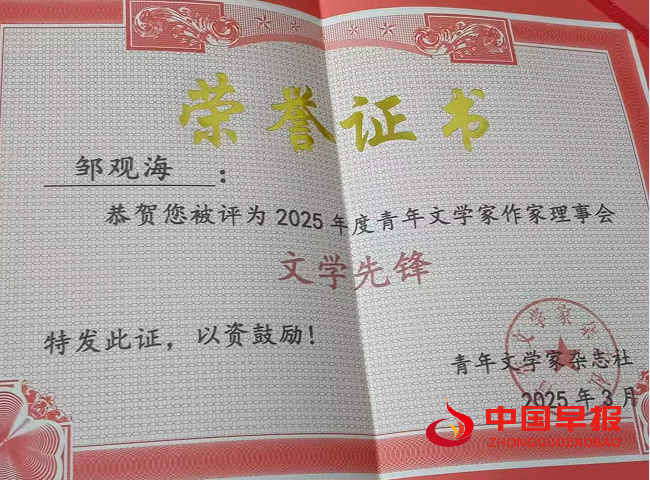 荣誉证书
邹观海：
恭贺您被评为2025年度青年文学家作家理事会
文学先锋
特发此证，以资鼓励！
文学家杂
青年文学家杂志社
2025年3月
中国早报
ZHONGGUOZAOBAO